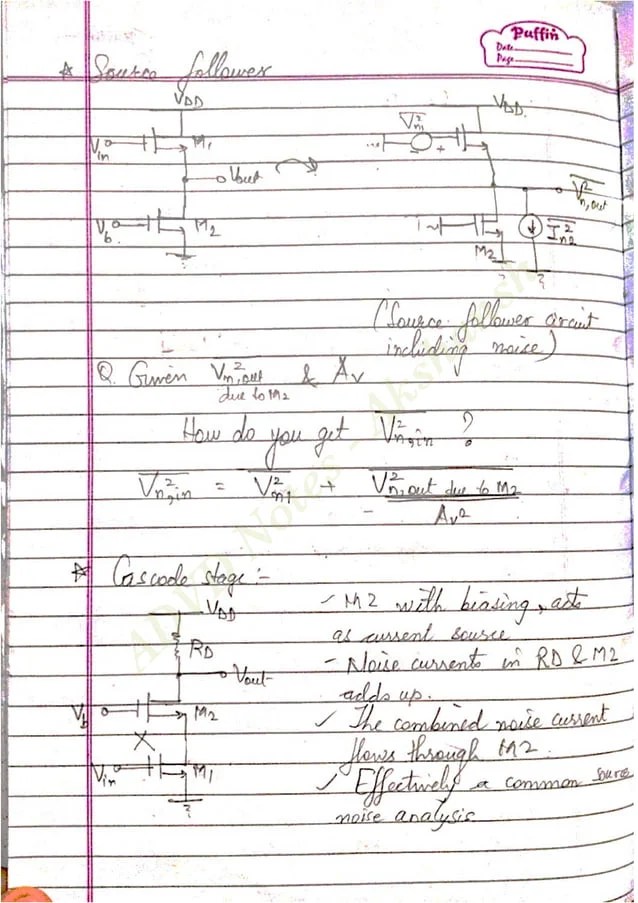 Puffin
Date
Page
☆ Source follower
VDD
VDD
Vin
M1
Vn1²
Vout
Vn,out²
Vb
M2
In2²
M2
(Source follower circuit
including noise)
Q. Given Vn,out² & Av
due to M2
How do you get Vn,in² ?
Vn,in² = Vn1² + Vn,out due to M2²
Av²
☆ Cascode stage :-
VDD
RD
Vout
Vb
M2
X
Vin
M1
- M2 with biasing, acts
as current source
- Noise currents in RD & M2
adds up.
✓ The combined noise current
flows through M2.
✓ Effectively a common source
noise analysis